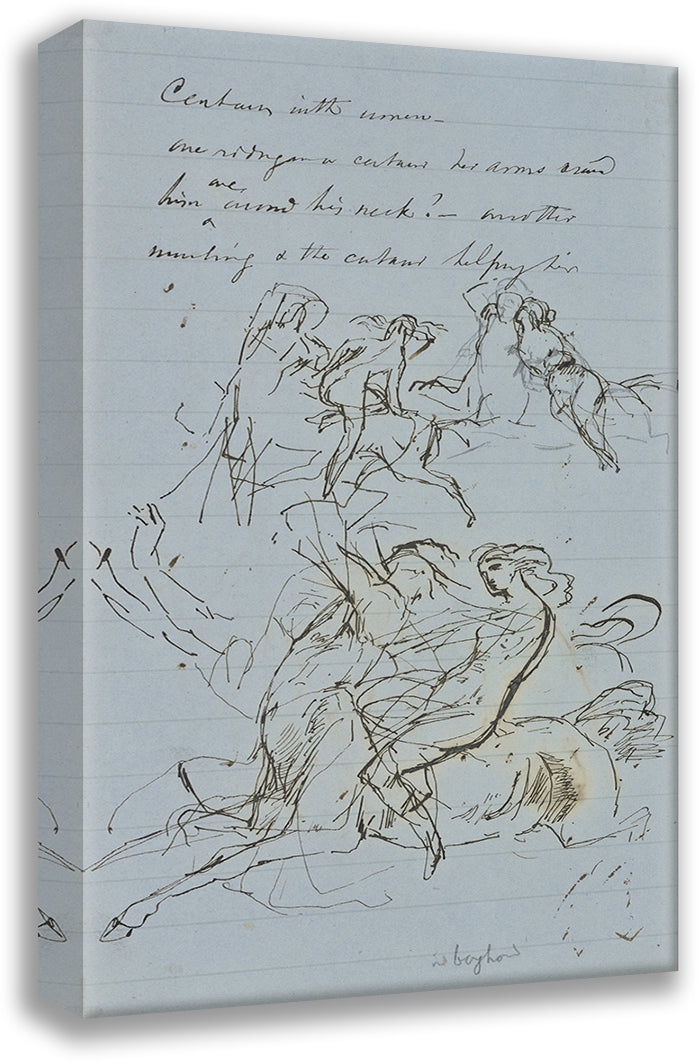 Centaurs with women -
one riding on a centaur her arms round
him one round his neck? - another
mounting & the centaur helping her